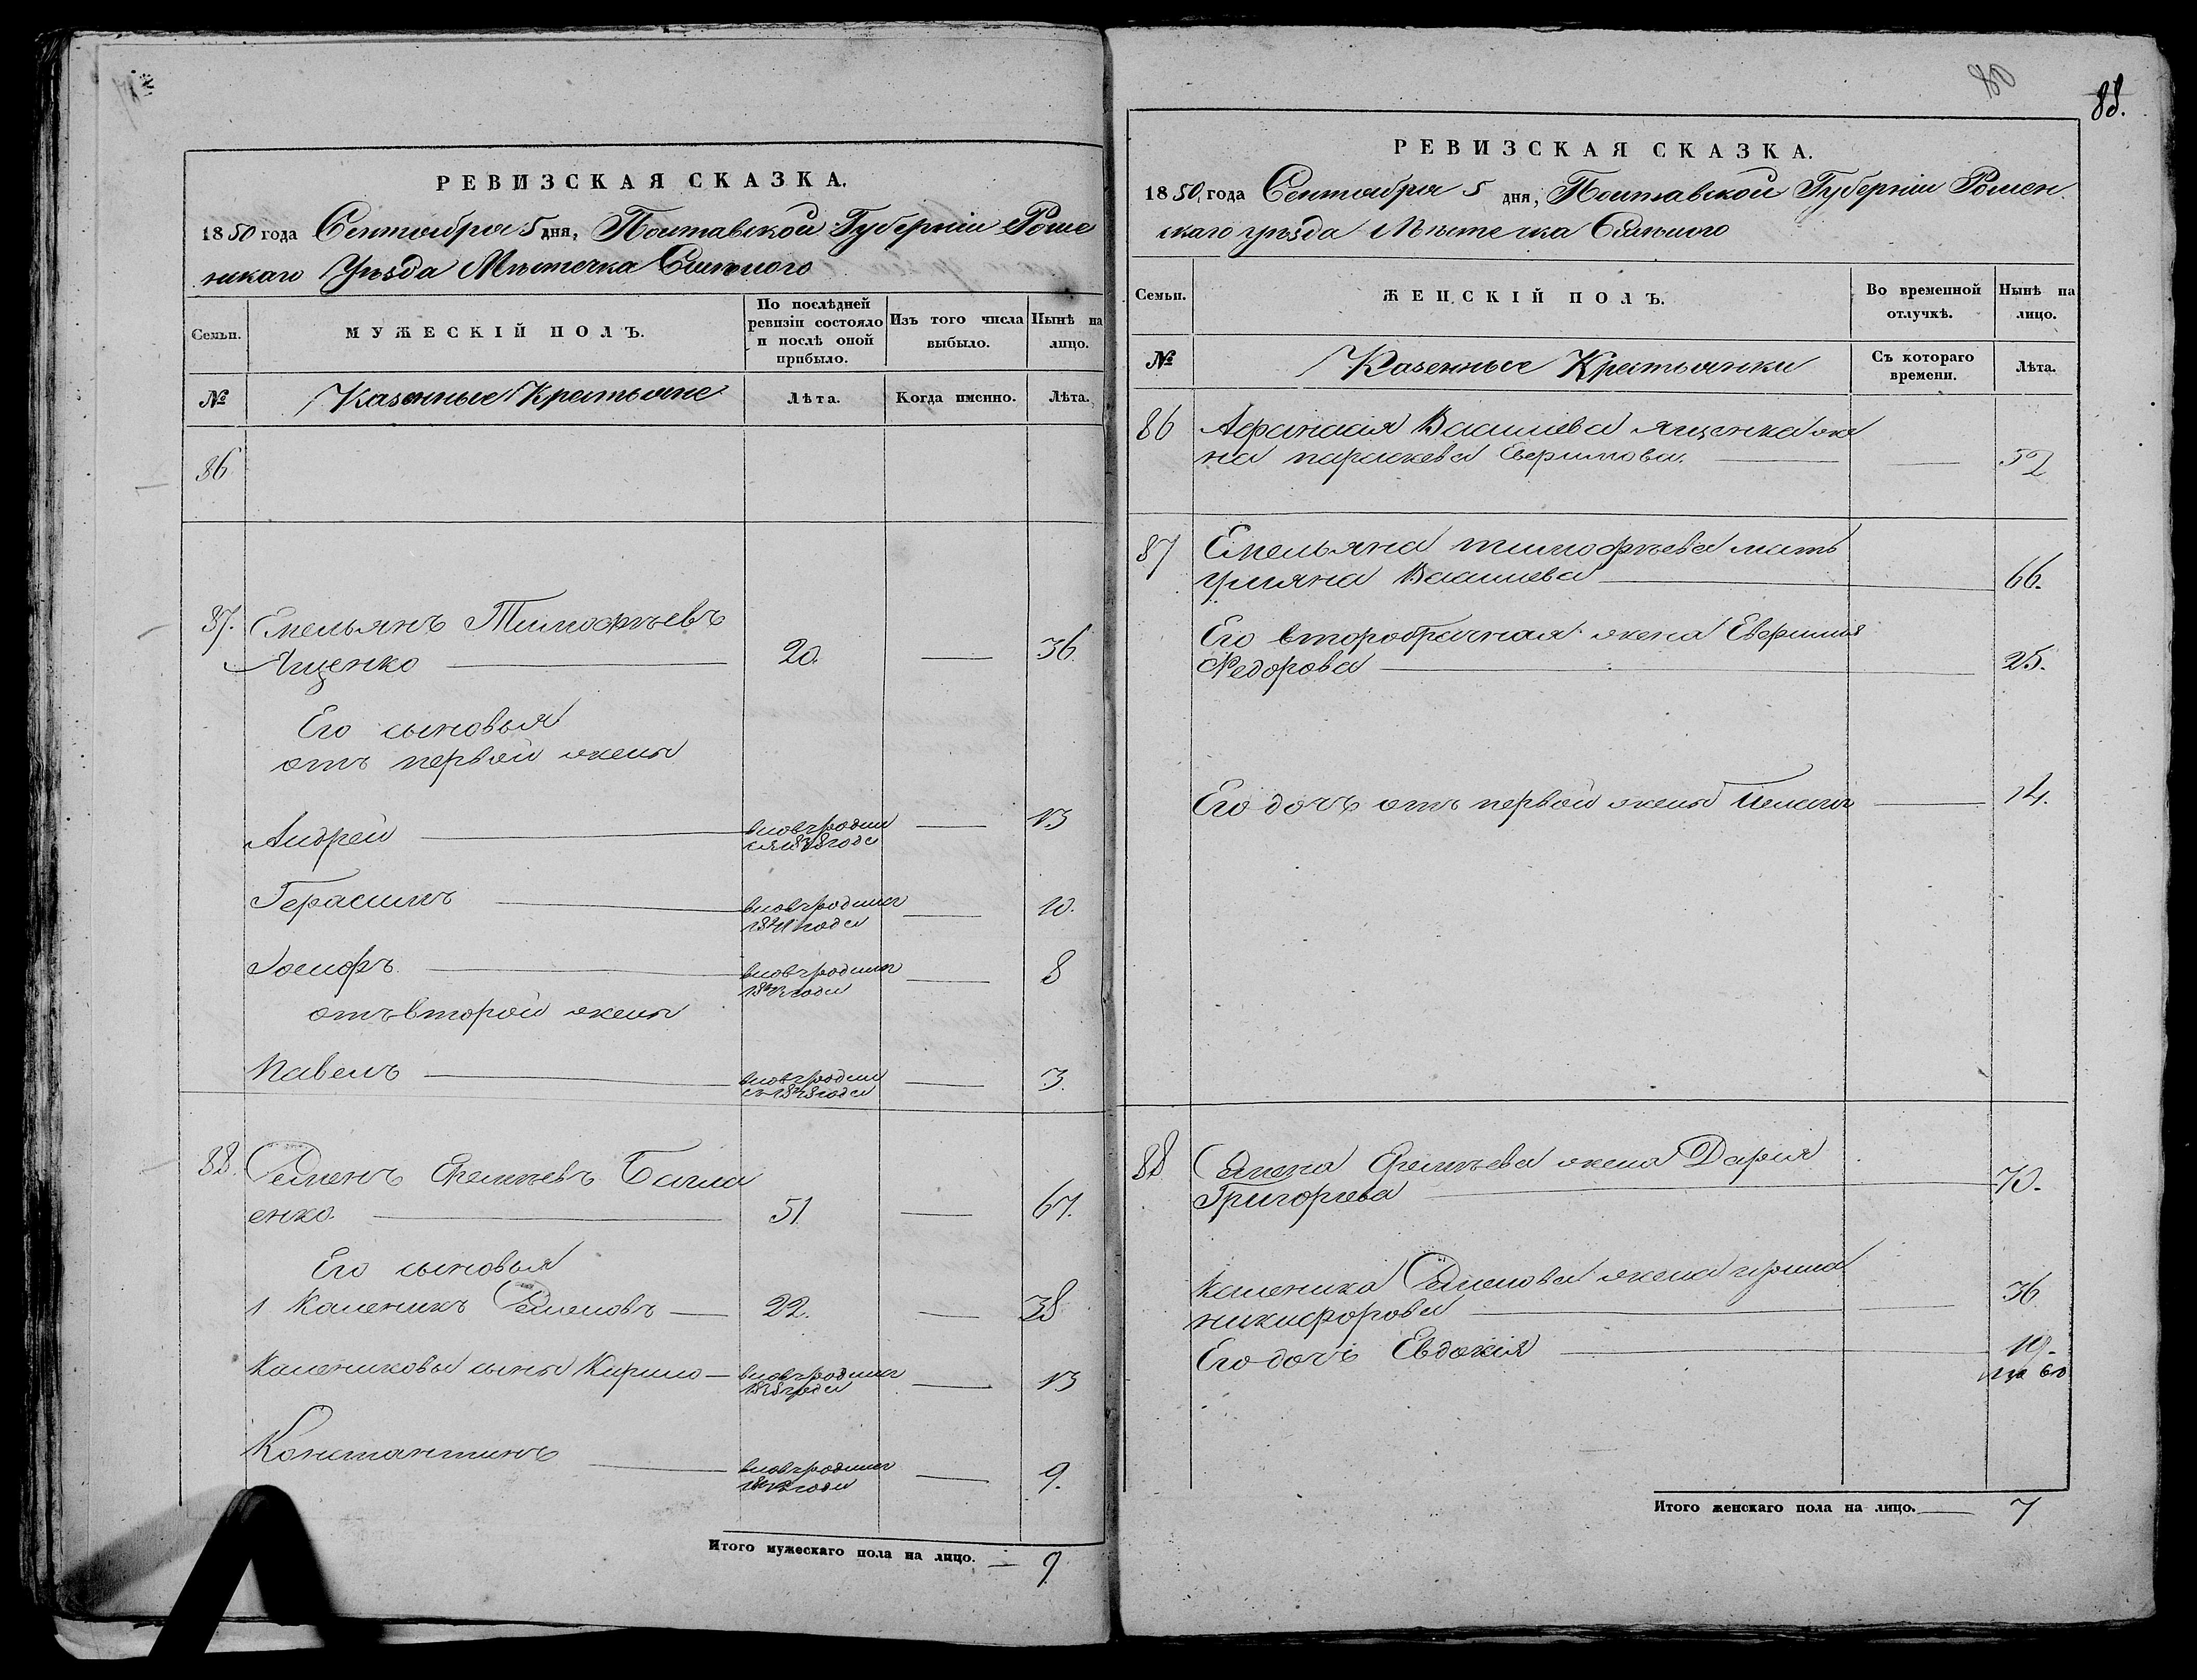 РЕВИЗСКАЯ СКАЗКА.
1850 года Сентября 5 дня, Полтавской Губерніи Роме
нскаго Уѣзда Мѣстечка Смѣлого
Семьи.
МУЖЕСКІЙ ПОЛЪ.
По послѣдней ревизіи состояло и послѣ оной прибыло.
Изъ того числа выбыло.
Нынѣ на лицо.
№
Казенные Крестьяне
Лѣта.
Когда именно.
Лѣта.
86
87. Емельянъ Тимофѣевъ
Ященко 20. 36.
Его сыновья
отъ первой жены
Андрей вновь родил
ся 1838 года 13
Герасимъ вновь родился
1841 года 10.
Іосифъ вновь родился
года 8
отъ второй жены
Павелъ вновь родил
ся 1848 года 3.
88. Семенъ
енко. 51. 67.
Его сыновья
1 Каленикъ Семеновъ 22. 38
Калениковы сыны Кирило вновь родился
1838 года 13
Константинъ вновь родился
года 9.
Итого мужескаго пола на лицо. 9
80
88.
РЕВИЗСКАЯ СКАЗКА.
1850, года Сентября 5 дня, Полтавской Губерніи Ромен
скаго уѣзда Мѣстечка Смѣлого
Семьи.
ЖЕНСКІЙ ПОЛЪ.
Во временной отлучкѣ.
Нынѣ на лицо.
№
Казенные Крестьянки
Съ котораго времени.
Лѣта.
86 Афанасія Василіева Ященка же
на параскева Евфимова. 52
87 Емельяна тимофѣева мать
улияна Василиева 66.
Его второбрачная жена Евфимия
Федорова 25.
Его дочь отъ первой жены 14.
88 Семена жена Дария
Григориева 70.
Каленика Семенова жена ирина
никифорова 36
Его дочь Евдокія 19.
Итого женскаго пола на лицо. 7